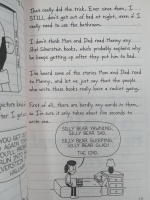 That really did the trick. Ever since then, I
STILL don't get out of bed at night, even if I
really need to use the bathroom.
I don't think Mom and Dad read Manny any
Shel Silverstein books, which probably explains why
he keeps getting up after they put him to bed.
I've heard some of the stories Mom and Dad read
to Manny, and let me just say that the people
who write those books really have a racket going.
First of all, there are hardly any words in them,
so I'm sure it only takes about five seconds to
write one.
SILLY BEAR YAWNING.
SILLY BEAR SAD.
SILLY BEAR SLEEPING.
SILLY BEAR GLAD!
THE END.